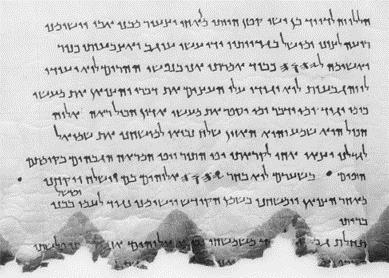 הללויה לדויד בן ישי קטן הייתי מאחי וצעיר מבני אבי וישימני
רועה לצונו ומושל בגדיותיו ידי עשו עוגב ואצבעותי כנור
ואשימה ל𐤉𐤄𐤅𐤄 כבוד אמרתי אני בנפשי ההרים לוא יעידו
לו והגבעות לוא יגידו עלו העצים את דברי והצואן את מעשי
כי מי יגיד ומי ידבר ומי יספר את מעשי אדון הכול ראה אלוה
הכול הוא שמע והוא האזין שלח נביאו למושחני את שמואל
לגדלני יצאו אחי לקראתו יפי התור ויפי המראה הגבהים בקומתם
היפים בשערם לוא בחר 𐤉𐤄𐤅𐤄 אלוהים בם וישלח ויקחני
מאחר הצואן וימשחני בשמן הקודש וישימני נגיד לעמו ומושל בבני
בריתו
תחלת משמשחו אלוהים פלשתי